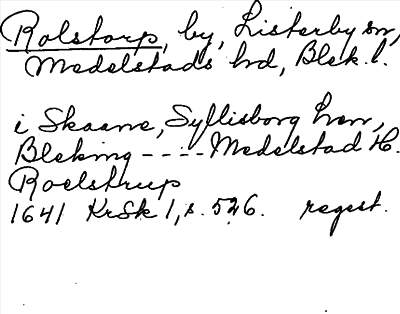 Rolstorp, by, Listerby sn,
Medelstads hd, Blek. l.
i Skaane, Syllisborg len,
Bleking ----- Medelstad H.
Roelstrup
1641 KrSk 1, s. 526. regest.